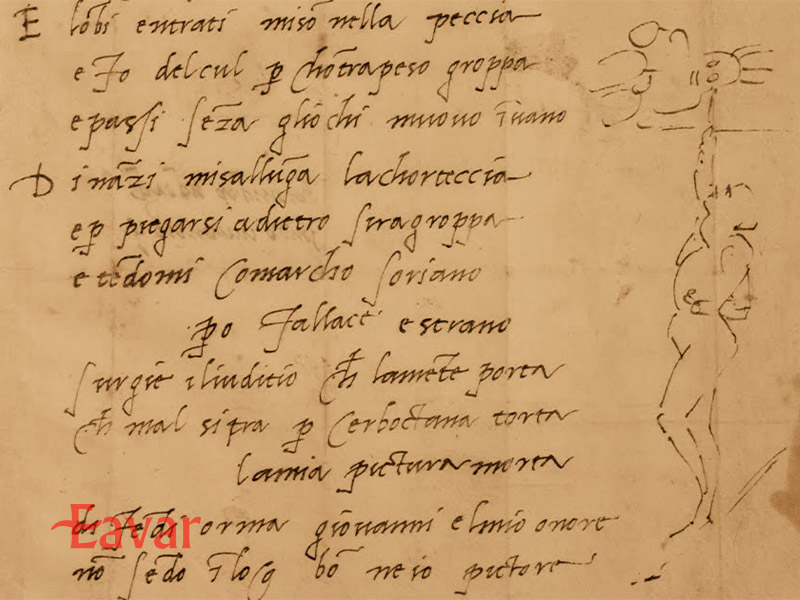 E lōbi entrati misō nella peccia
e fo del cul p̱ chōtrapeso groppa
e passi sēza gliochi muovo īvano
Dināzi misallūga lachorteccia
e p̱ piegarsi adietro siragroppa
e tēdomi comarcho soriano
p̱o fallace e strano
surgie iliuditio ch̄ lamēte porta
ch̄ mal sitra p̱ cerboctana torta
lamia pictura morta
orma giovanni elmio onore
nō sēdo ī loco bō ne io pictore
Eavar